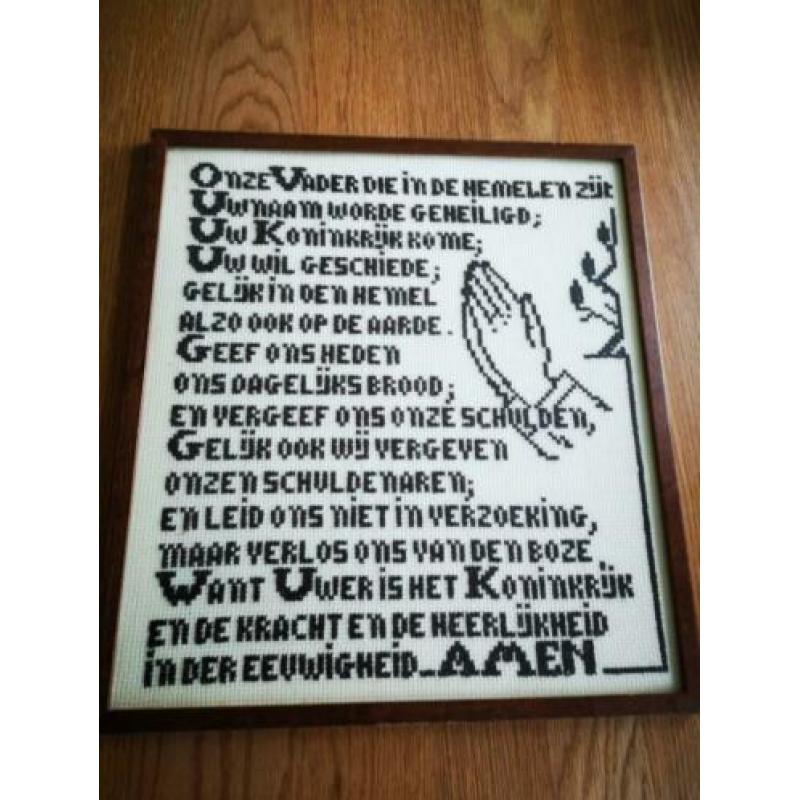 Onze Vader die in de hemelen zijt
Uw naam worde geheiligd;
Uw Koninkrijk kome;
Uw wil geschiede;
gelijk in den hemel
alzo ook op de aarde.
Geef ons heden
ons dagelijks brood;
en vergeef ons onze schulden,
Gelijk ook wij vergeven
onzen schuldenaren;
en leid ons niet in verzoeking,
maar verlos ons van den boze
Want Uwer is het Koninkrijk
en de kracht en de heerlijkheid
in der eeuwigheid_AMEN